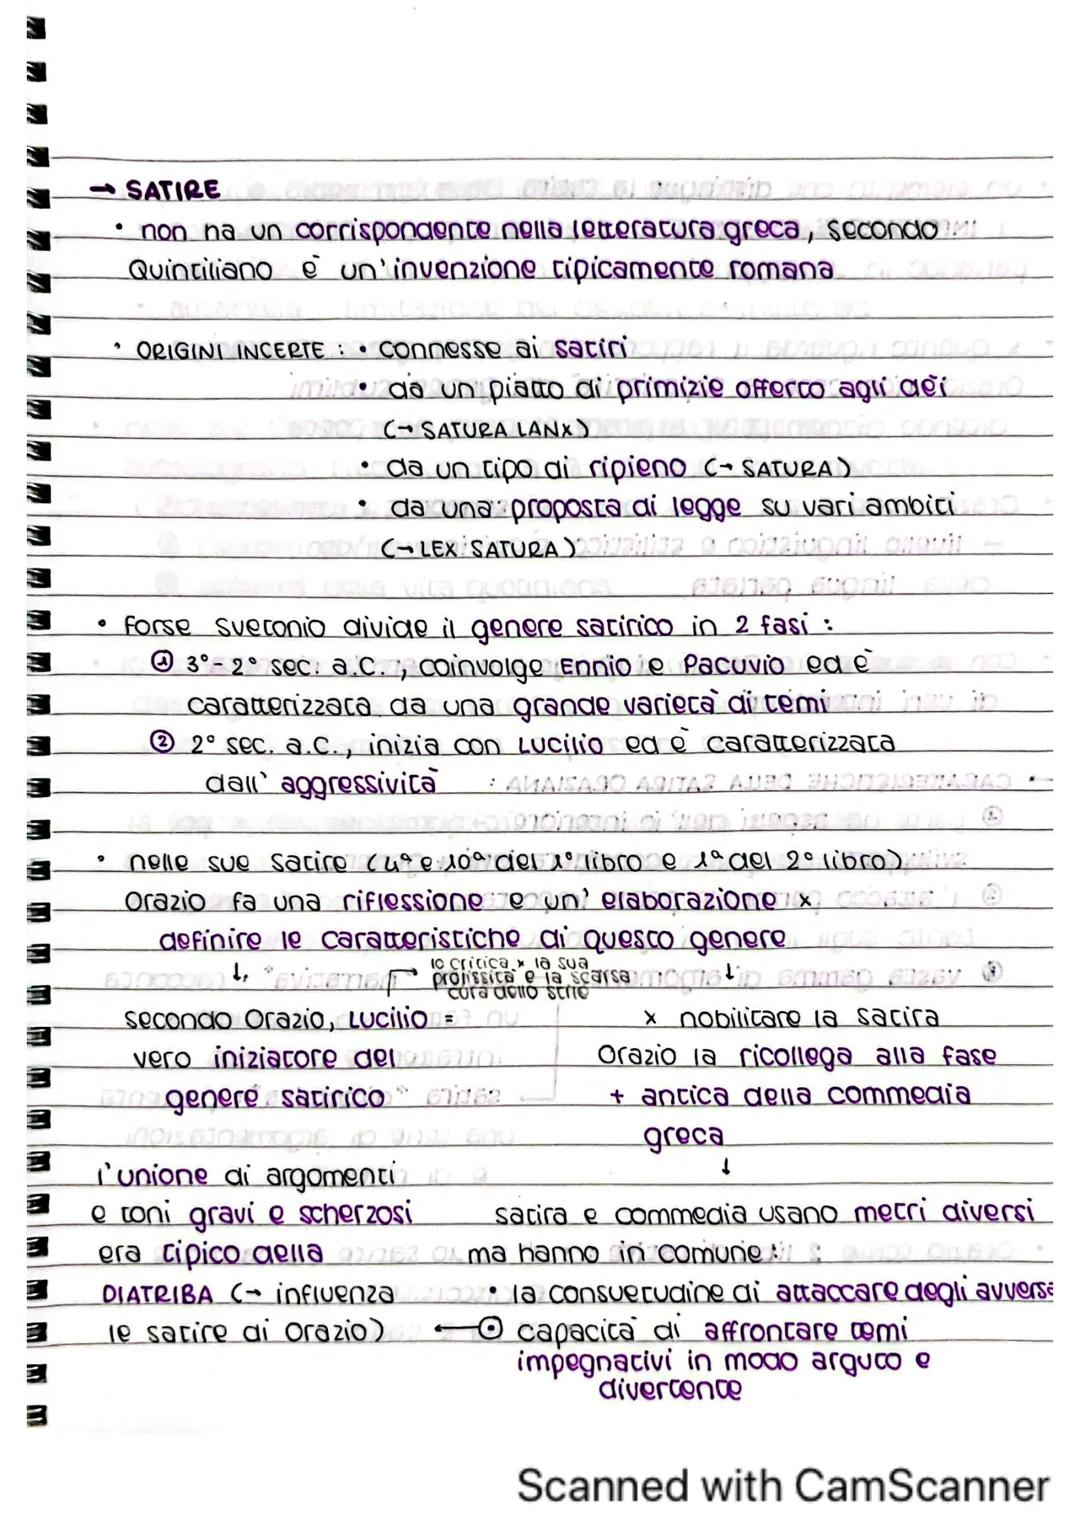 → SATIRE
• non ha un corrispondente nella letteratura greca, secondo
Quintiliano è un'invenzione tipicamente romana
• ORIGINI INCERTE : • connesse ai satiri
• da un piatto di primizie offerto agli dèi
(→ SATURA LANX)
• da un tipo di ripieno (→ SATURA)
• da una proposta di legge su vari ambiti
(→ LEX SATURA)
• forse Svetonio divide il genere satirico in 2 fasi :
① 3°- 2° sec. a.C., coinvolge Ennio e Pacuvio ed è
caratterizzata da una grande varietà di temi
② 2° sec. a.C., inizia con Lucilio ed è caratterizzata
dall' aggressività
• nelle sue satire (4ª e 10ª del 1° libro e 1ª del 2° libro)
Orazio fa una riflessione e un' elaborazione x
definire le caratteristiche di questo genere
↓ ↓
lo critica x la sua
prolissità e la scarsa
cura dello stile
secondo Orazio, Lucilio =
vero iniziatore del
genere satirico
x nobilitare la satira
Orazio la ricollega alla fase
+ antica della commedia
greca
↓
l'unione di argomenti
e toni gravi e scherzosi
era tipico della
DIATRIBA (→ influenza
le satire di Orazio)
satira e commedia usano metri diversi
ma hanno in comune :
• la consuetudine di attaccare degli avversa
← • capacità di affrontare temi
impegnativi in modo arguto e
divertente
Scanned with CamScanner